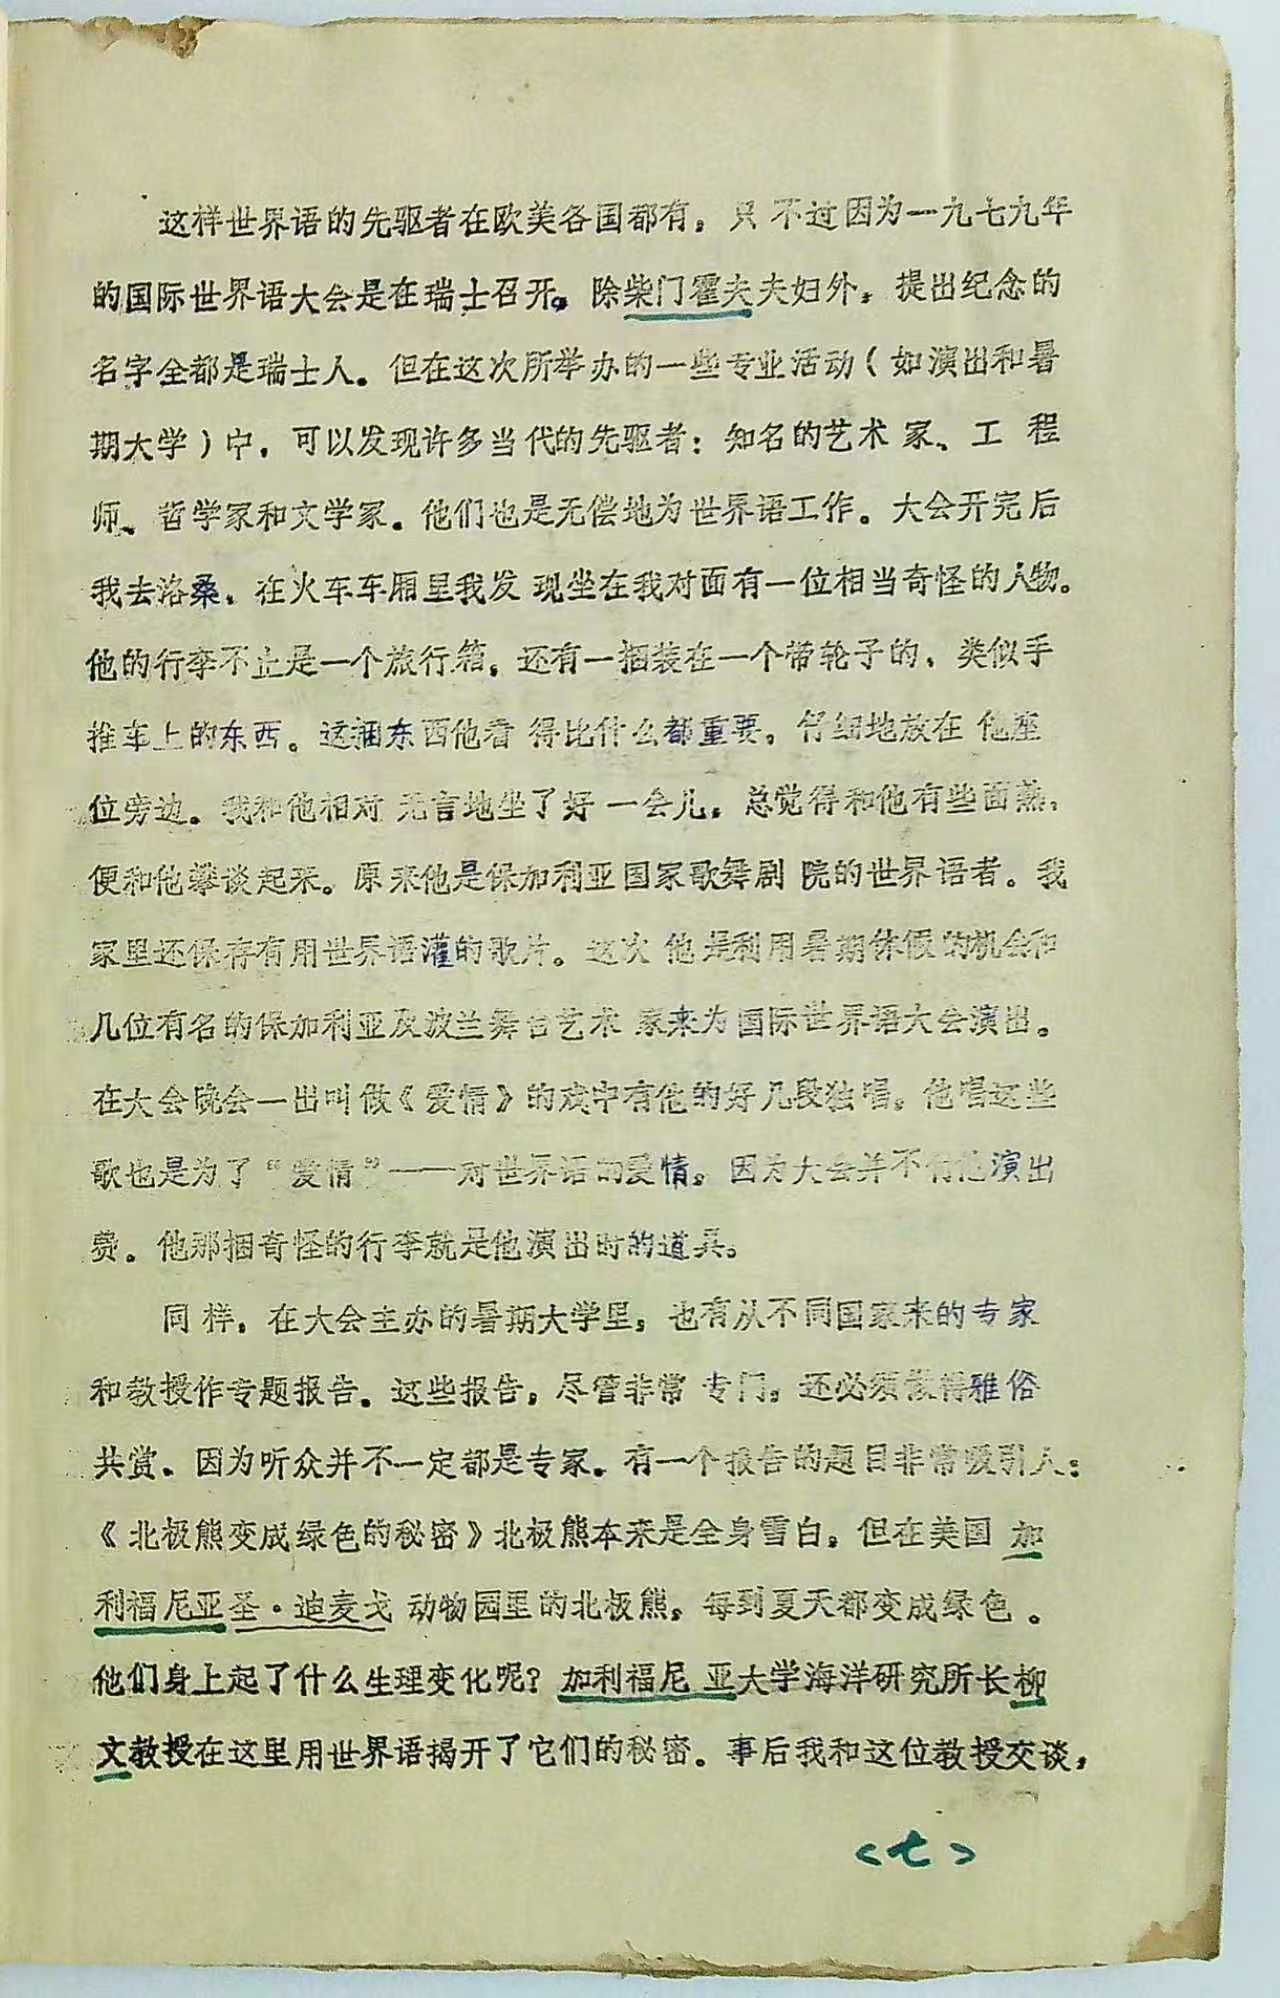 这样世界语的先驱者在欧美各国都有，只不过因为一九七九年
的国际世界语大会是在瑞士召开。除柴门霍夫夫妇外，提出纪念的
名字全都是瑞士人。但在这次所举办的一些专业活动（如演出和暑
期大学）中，可以发现许多当代的先驱者：知名的艺术家、工程
师、哲学家和文学家。他们也是无偿地为世界语工作。大会开完后
我去洛桑，在火车车厢里我发现坐在我对面有一位相当奇怪的人物。
他的行李不止是一个旅行箱，还有一捆装在一个带轮子的、类似手
推车上的东西。这捆东西他看得比什么都重要，仔细地放在他座
位旁边。我和他相对无言地坐了好一会儿，总觉得和他有些面熟，
便和他攀谈起来。原来他是保加利亚国家歌舞剧院的世界语者。我
家里还保存有用世界语灌的歌片。这次他是利用暑期休假的机会和
几位有名的保加利亚及波兰舞台艺术家来为国际世界语大会演出。
在大会晚会一出叫做《爱情》的戏中有他的好几段独唱。他唱这些
歌也是为了“爱情”——对世界语的爱情。因为大会并不付他演出
费。他那捆奇怪的行李就是他演出时的道具。
同样，在大会主办的暑期大学里，也有从不同国家来的专家
和教授作专题报告。这些报告，尽管非常专门，还必须做得雅俗
共赏、因为听众并不一定都是专家。有一个报告的题目非常吸引人：
《北极熊变成绿色的秘密》北极熊本来是全身雪白，但在美国加
利福尼亚圣·迪麦戈动物园里的北极熊，每到夏天都变成绿色。
他们身上起了什么生理变化呢？加利福尼亚大学海洋研究所长柳
文教授在这里用世界语揭开了它们的秘密。事后我和这位教授交谈，
<七>